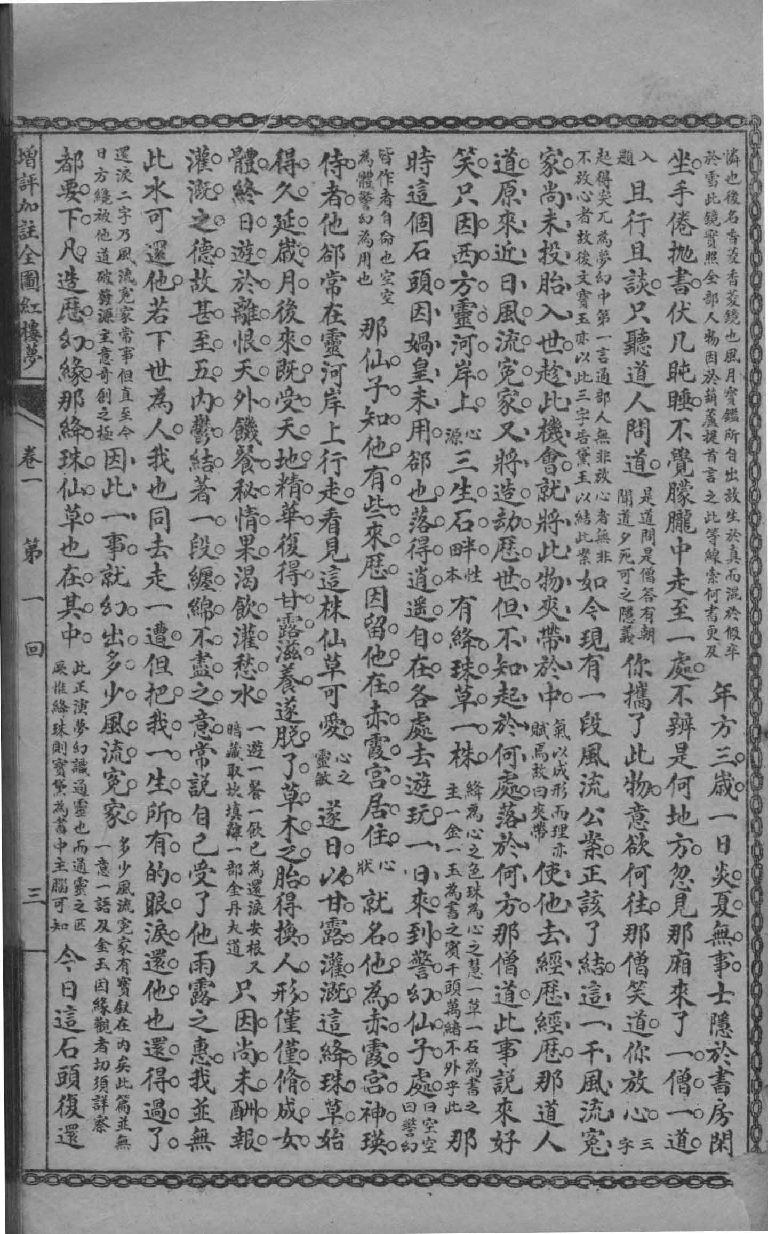 憐也後名香菱香菱鏡也風月寶鑑所自出故生於真而混於假卒
於雪此鏡實照全部人物因於葫蘆提首言之此等線索何書更及 年方三歲一日炎夏無事士隱於書房閑
坐手倦拋書伏几盹睡不覺朦朧中走至一處不辨是何地方忽見那廂來了一僧一道
入題 且行且談只聽道人問道 是道問是僧答有朝聞道夕死可之隱義 你攜了此物意欲何往那僧笑道你放心 三字
起得突兀為夢幻中第一言通部人無非放心者無非
不放心者故後文寶玉亦以此三字告黛玉以結此案 如今現有一段風流公案正該了結這一干風流冤
家尚未投胎入世趁此機會就將此物夾帶於中 氣以成形而理亦賦焉故曰夾帶 使他去經歷經歷那道人
道原來近日風流冤家又將造劫歷世但不知起於何處落於何方那僧道此事說來好
笑只因西方靈河岸上 心源 三生石畔 性本 有絳珠草一株 絳為心之色珠為心之慧一草一石為書之主一金一玉為書之賓千頭萬緒不外乎此 那
時這個石頭因媧皇未用卻也落得逍遙自在各處去遊玩一日來到警幻仙子處 曰空空曰警幻
皆作者自命也空空
為體警幻為用也 那仙子知他有些來歷因留他在赤霞宮居住 心狀 就名他為赤霞宮神瑛
侍者他卻常在靈河岸上行走看見這株仙草可愛 心之靈敏 遂日以甘露灌溉這絳珠草始
得久延歲月後來既受天地精華復得甘露滋養遂脫了草木之胎得換人形僅僅脩成女
體終日遊於離恨天外饑餐秘情果渴飲灌愁水 一遊一餐一飲已為還淚安根又暗藏取坎填離一部金丹大道 只因尚未酬報
灌溉之德故甚至五內鬱結著一段纏綿不盡之意常說自己受了他雨露之惠我並無
此水可還他若下世為人我也同去走一遭但把我一生所有的眼淚還他也還得過了
還淚二字乃風流冤家常事但直至今
日方纔被他道破發源主意奇創之極 因此一事就幻出多少風流冤家 多少風流冤家有寶釵在內矣此篇並無一意一語及金玉因緣觀者切須詳察
都要下凡造歷幻緣那絳珠仙草也在其中 此正演夢幻識通靈也而通靈之因厥惟絳珠則寶黛為書中主腦可知 今日這石頭復還
增評加註全圖紅樓夢 卷一 第一回 三